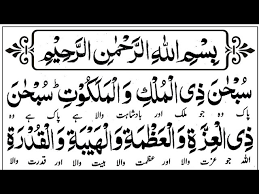 بِسْمِ اللهِ الرَّحْمٰنِ الرَّحِيْمِ
سُبْحٰنَ ذِی الْمُلْكِ وَ الْمَلَكُوْتِ سُبْحٰنَ
پاک وہ جو ملک اور بادشاہت والا ہے پاک ہے وہ
ذِی الْعِزَّةِ وَ الْعَظَمَةِ وَ الْهَيْبَةِ وَ الْقُدْرَةِ
اللہ جو عزت والا اور عظمت والا ہیبت والا اور قدرت والا